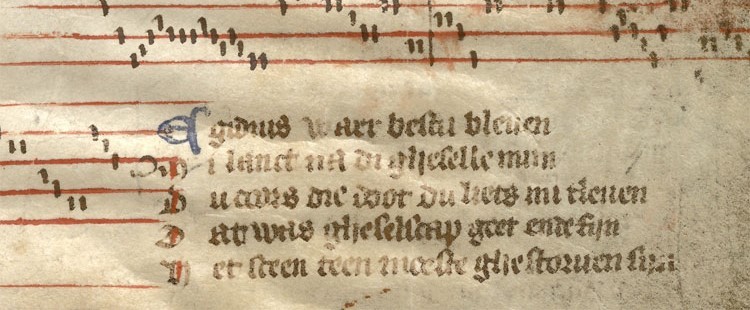 Egidius waer bestu bleuen
Mi lanct na di gheselle mijn
Du coors die doot du liets mi tleuen
Dat was gheselscap goet ende fijn
Het sceen teen moeste ghestoruen sijn